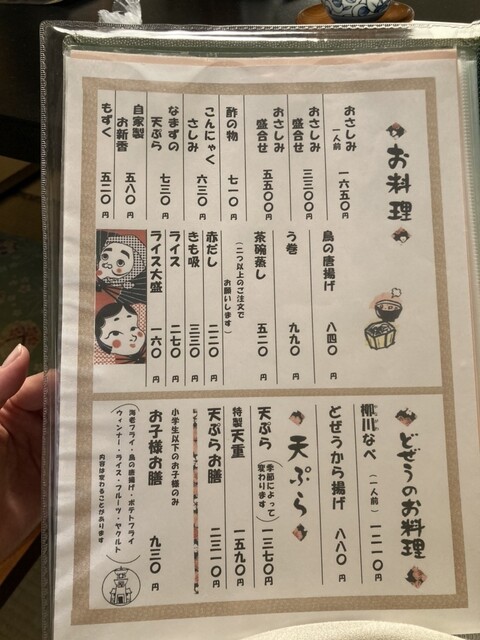 お料理
おさしみ 一人前 一六五〇円
おさしみ盛合せ 三三〇〇円
おさしみ盛合せ 五五〇〇円
酢の物 七一〇円
こんにゃくさしみ 六三〇円
なまずの天ぷら 七三〇円
自家製お新香 五八〇円
もずく 五二〇円
鳥の唐揚げ 八四〇円
う巻 九九〇円
茶碗蒸し 五二〇円
(二つ以上のご注文でお願いします)
赤だし 二二〇円
きも吸 三三〇円
ライス 二七〇円
ライス大盛 一六〇円
どぜうのお料理
柳川なべ (一人前) 一二一〇円
どぜうから揚げ 八八〇円
天ぷら
天ぷら (季節によって変わります) 一三七〇円
特製天重 一五九〇円
天ぷらお膳 二三一〇円
小学生以下のお子様のみ
お子様お膳 九三〇円
(海老フライ・鳥の唐揚げ・ポテトフライ
ウィンナー・ライス・フルーツ・ヤクルト)
内容は変わることがあります